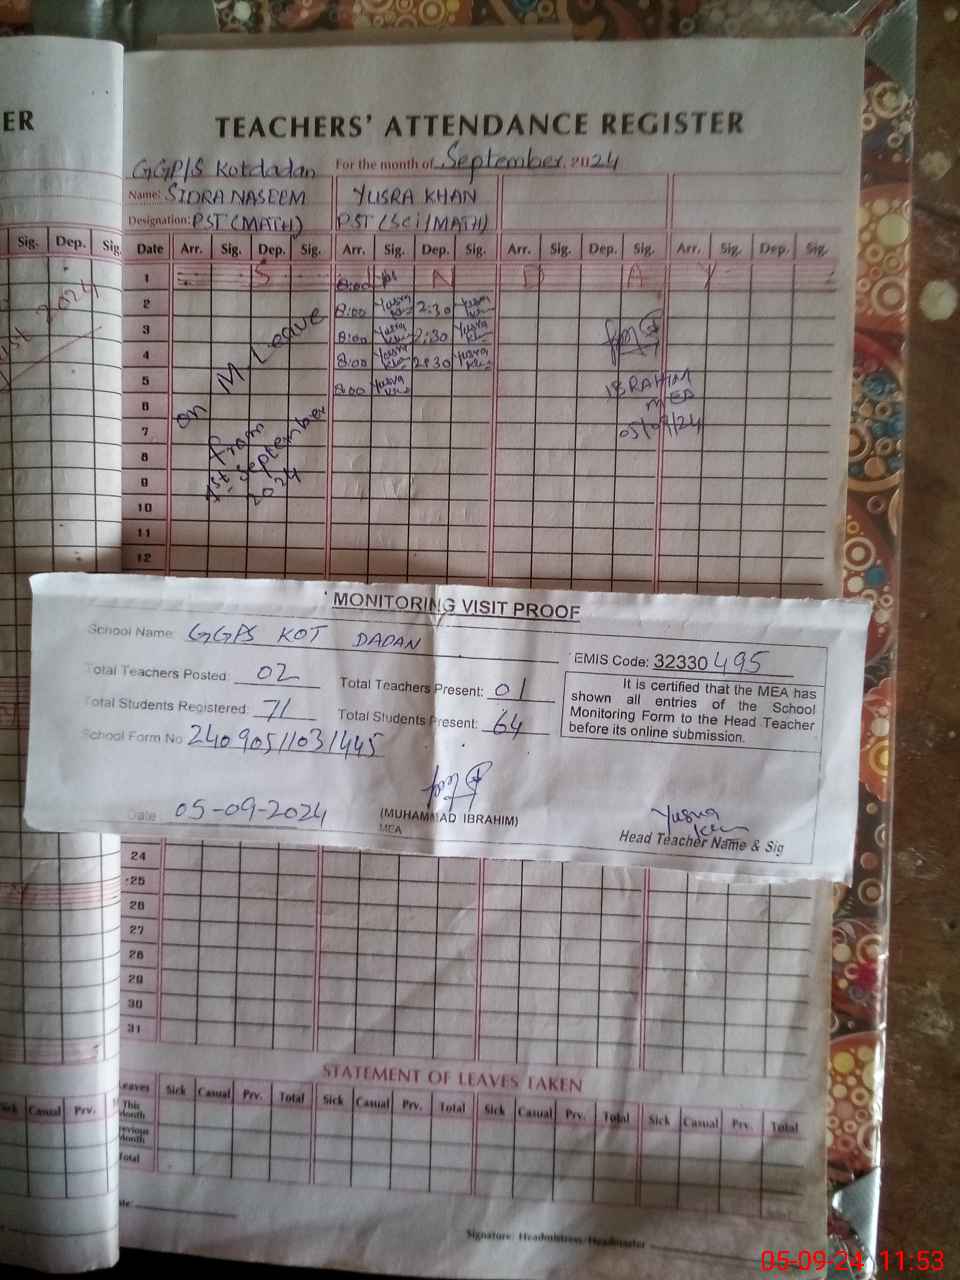 ER
TEACHERS' ATTENDANCE REGISTER
GGP/S Kotdadan For the month of September, 2024
Name: SIDRA NASEEM YUSRA KHAN
Designation: PST (MATH) PST (Sci/MATH)
Sig. Dep. Sig.
Date Arr. Sig. Dep. Sig. Arr. Sig. Dep. Sig. Arr. Sig. Dep. Sig. Arr. Sig. Dep. Sig.
1 S N D A Y
8:00
2 8:00 Yusra 2:30 Yusra
3 8:00 Yusra 2:30 Yusra
4 8:00 Yusra 2:30 Yusra
5 8:00 Yusra
6
7
8
9
10
11
12
on M Leave
from
1st September
2024
2024
IBRAHIM
MEA
05/09/24
MONITORING VISIT PROOF
School Name: GGPS KOT DADAN
EMIS Code: 32330495
Total Teachers Posted: 02 Total Teachers Present: 01
Total Students Registered: 71 Total Students Present: 64
School Form No: 240905110311445
It is certified that the MEA has
shown all entries of the School
Monitoring Form to the Head Teacher
before its online submission.
Date: 05-09-2024
(MUHAMMAD IBRAHIM)
MEA
Yusra
Head Teacher Name & Sig
24
25
26
27
28
29
30
31
STATEMENT OF LEAVES TAKEN
Leaves Sick Casual Prv. Total Sick Casual Prv. Total Sick Casual Prv. Total Sick Casual Prv. Total
Sick Casual Prv.
This Month
Previous Month
Total
Signature: Headmistress/Headmaster
05-09-24 11:53